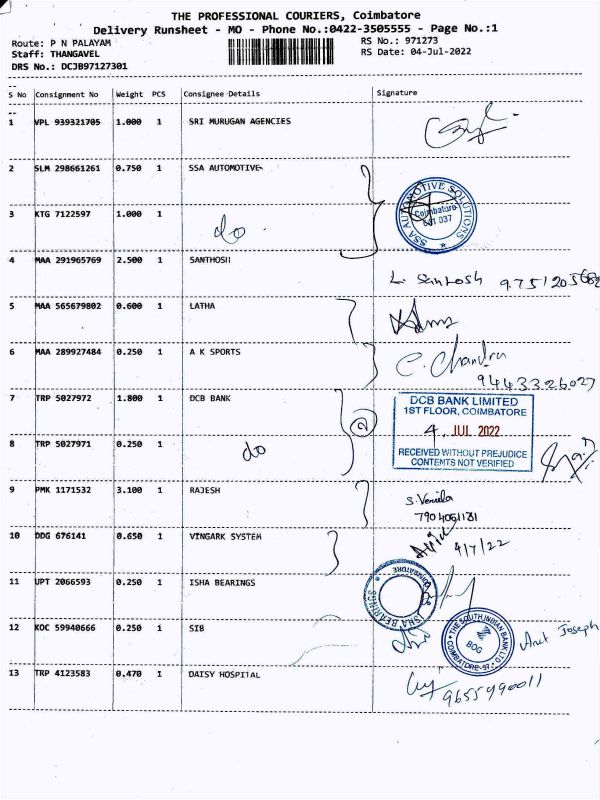 THE PROFESSIONAL COURIERS, Coimbatore
Delivery Runsheet - MO - Phone No.:0422-3505555 - Page No.:1
Route: P N PALAYAM
RS No.: 971273
Staff: THANGAVEL
RS Date: 04-Jul-2022
DRS No.: DCJB97127301
S No Consignment No Weight PCS Consignee Details Signature
1 VPL 939321705 1.000 1 SRI MURUGAN AGENCIES
2 SLM 298661261 0.750 1 SSA AUTOMOTIVE
SSA AUTOMOTIVE SOLUTIONS
Coimbatore
641 037
3 KTG 7122597 1.000 1 do
4 MAA 291965769 2.500 1 SANTHOSH
L. Santosh 9751205682
5 MAA 565679802 0.600 1 LATHA
6 MAA 289927484 0.250 1 A K SPORTS
C. Chandra
9443326027
7 TRP 5027972 1.800 1 DCB BANK
DCB BANK LIMITED
1ST FLOOR, COIMBATORE
4 JUL 2022
RECEIVED WITHOUT PREJUDICE
CONTENTS NOT VERIFIED
8 TRP 5027971 0.250 1 do
9 PMK 1171532 3.100 1 RAJESH
7904061131
10 DDG 676141 0.650 1 VINGARK SYSTEM
4/7/22
11 UPT 2066593 0.250 1 ISHA BEARINGS
ISHA BEARINGS
COIMBATORE
12 KOC 59940666 0.250 1 SIB
THE SOUTH INDIAN BANK LTD
BOG
COIMBATORE-97
Joseph
13 TRP 4123583 0.470 1 DAISY HOSPITAL
9655990011